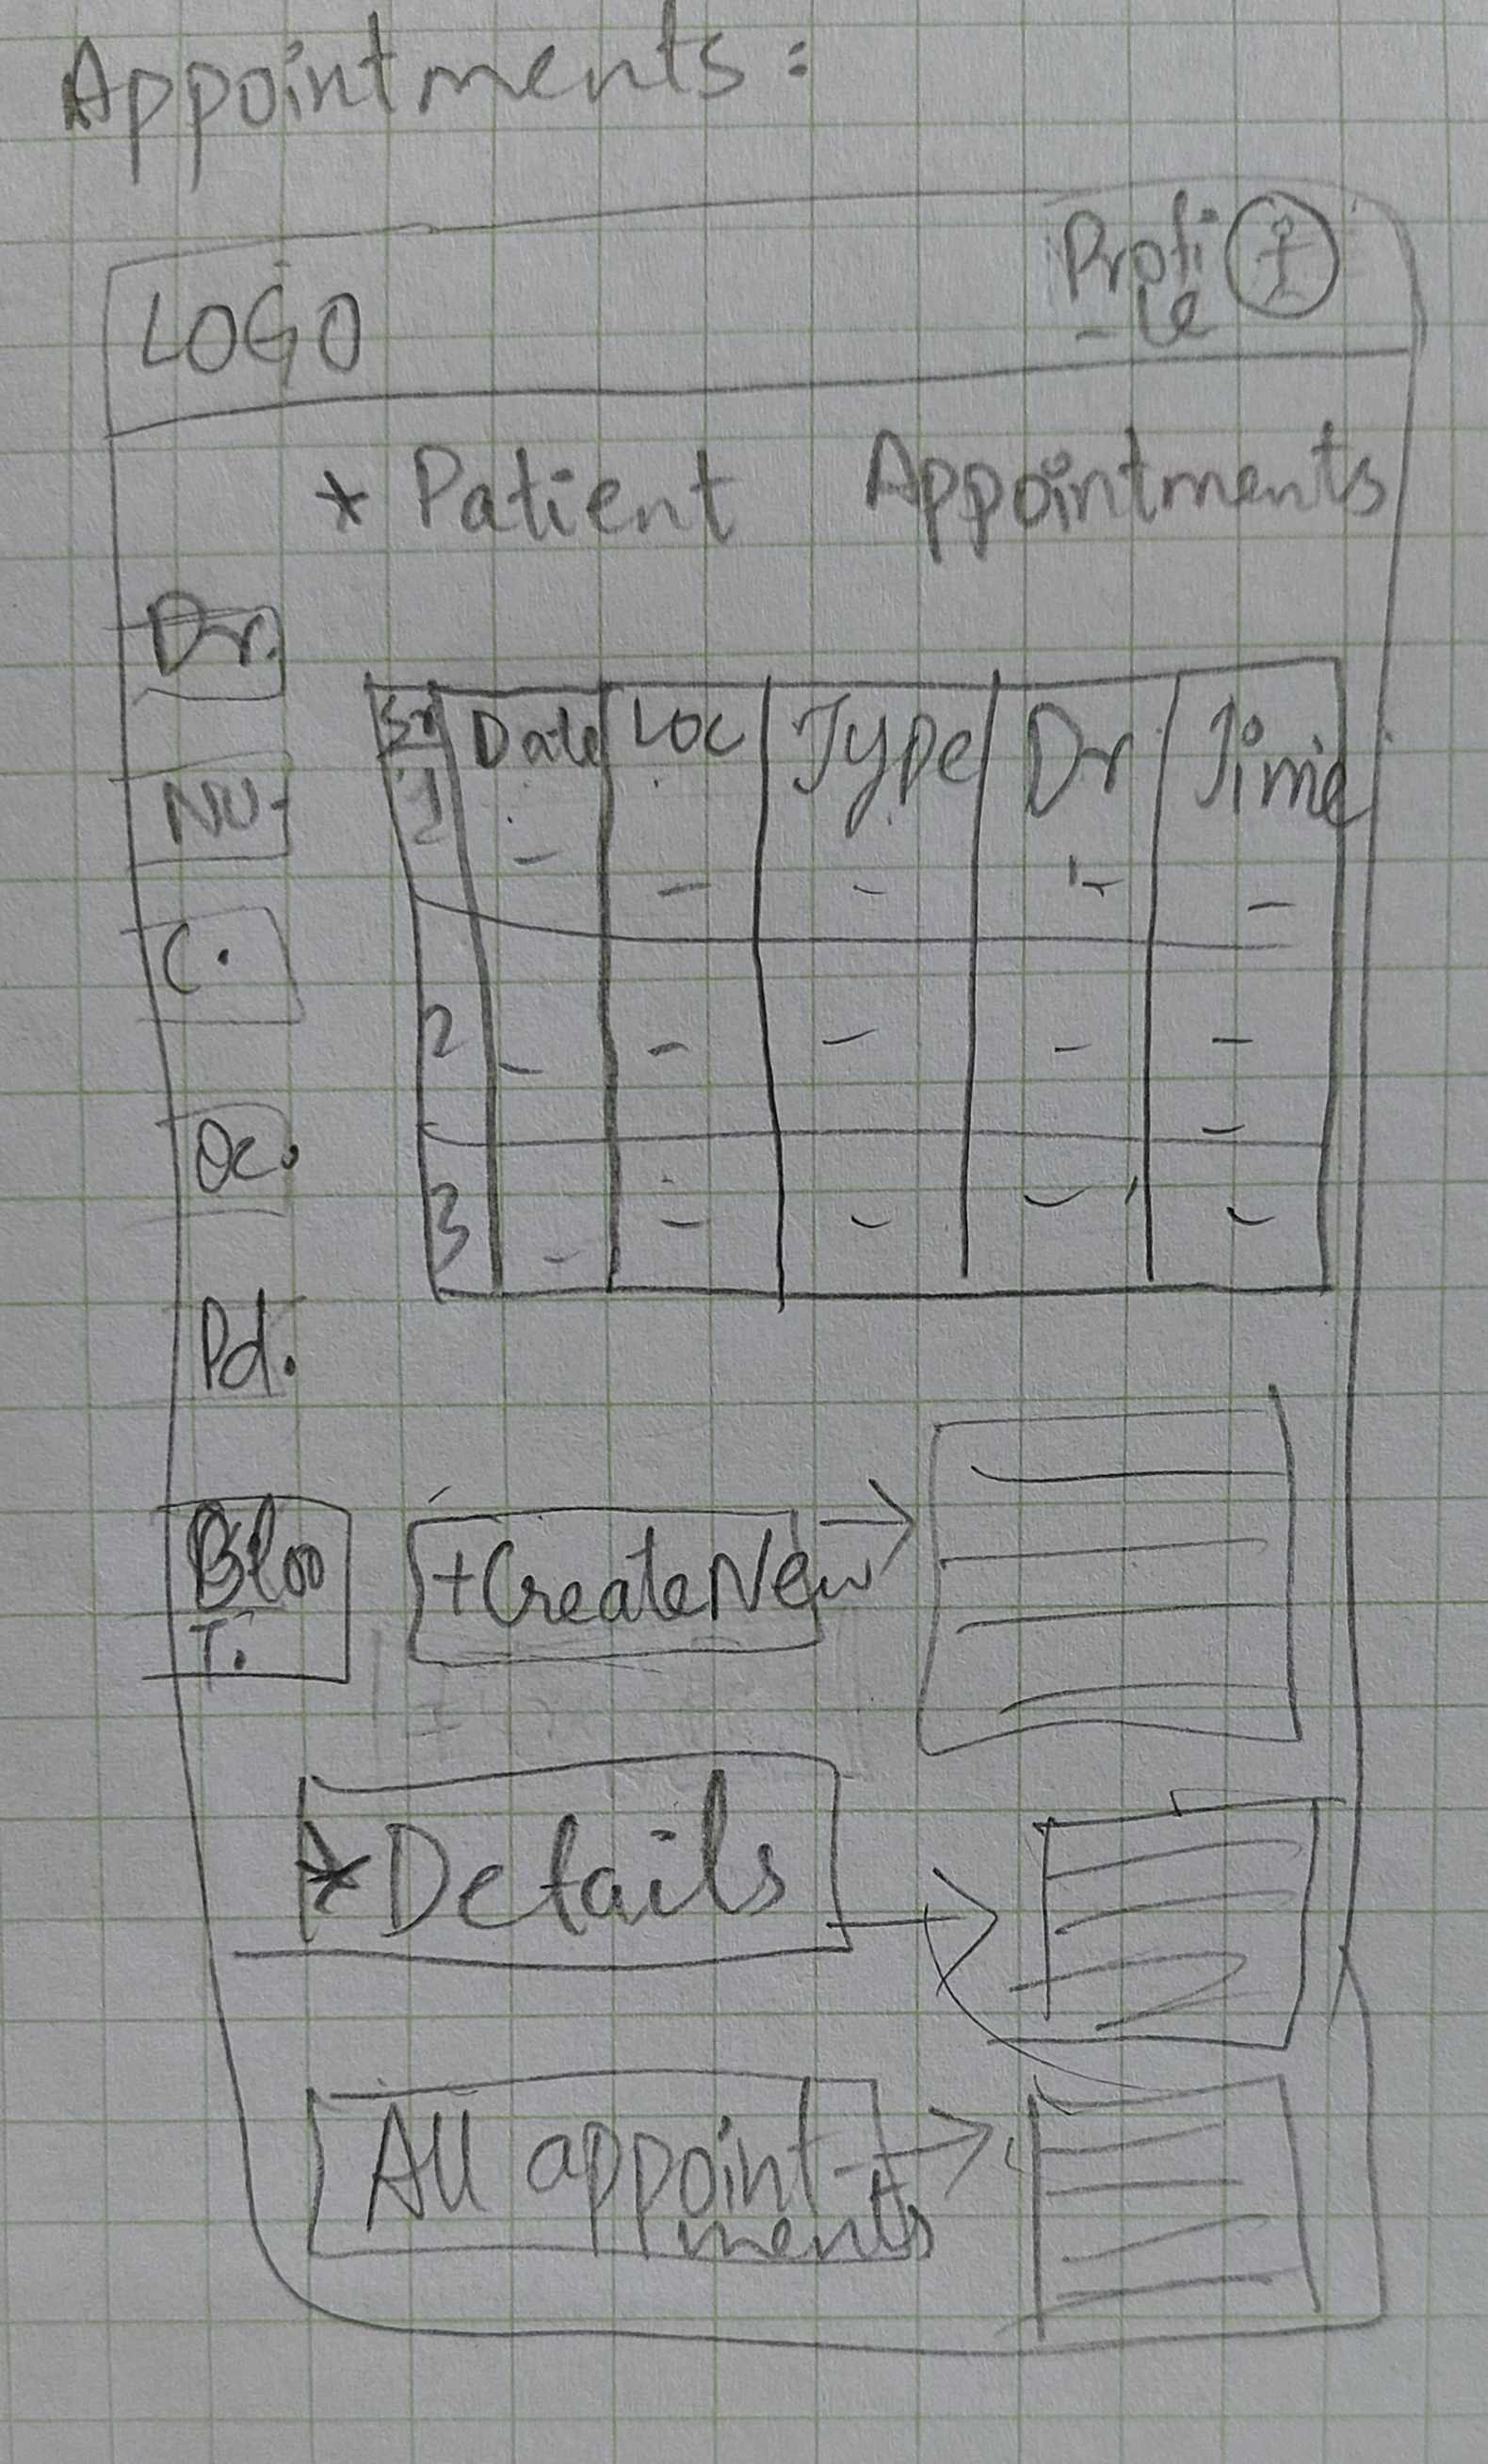 Appointments:
LOGO
Profi
-le
* Patient Appointments
Dr.
Nu.
C.
Oc.
Pd.
Bloo
T.
Sr Date Loc Type Dr Time
1
2
3
+CreateNew
*Details
All appoint-
ments